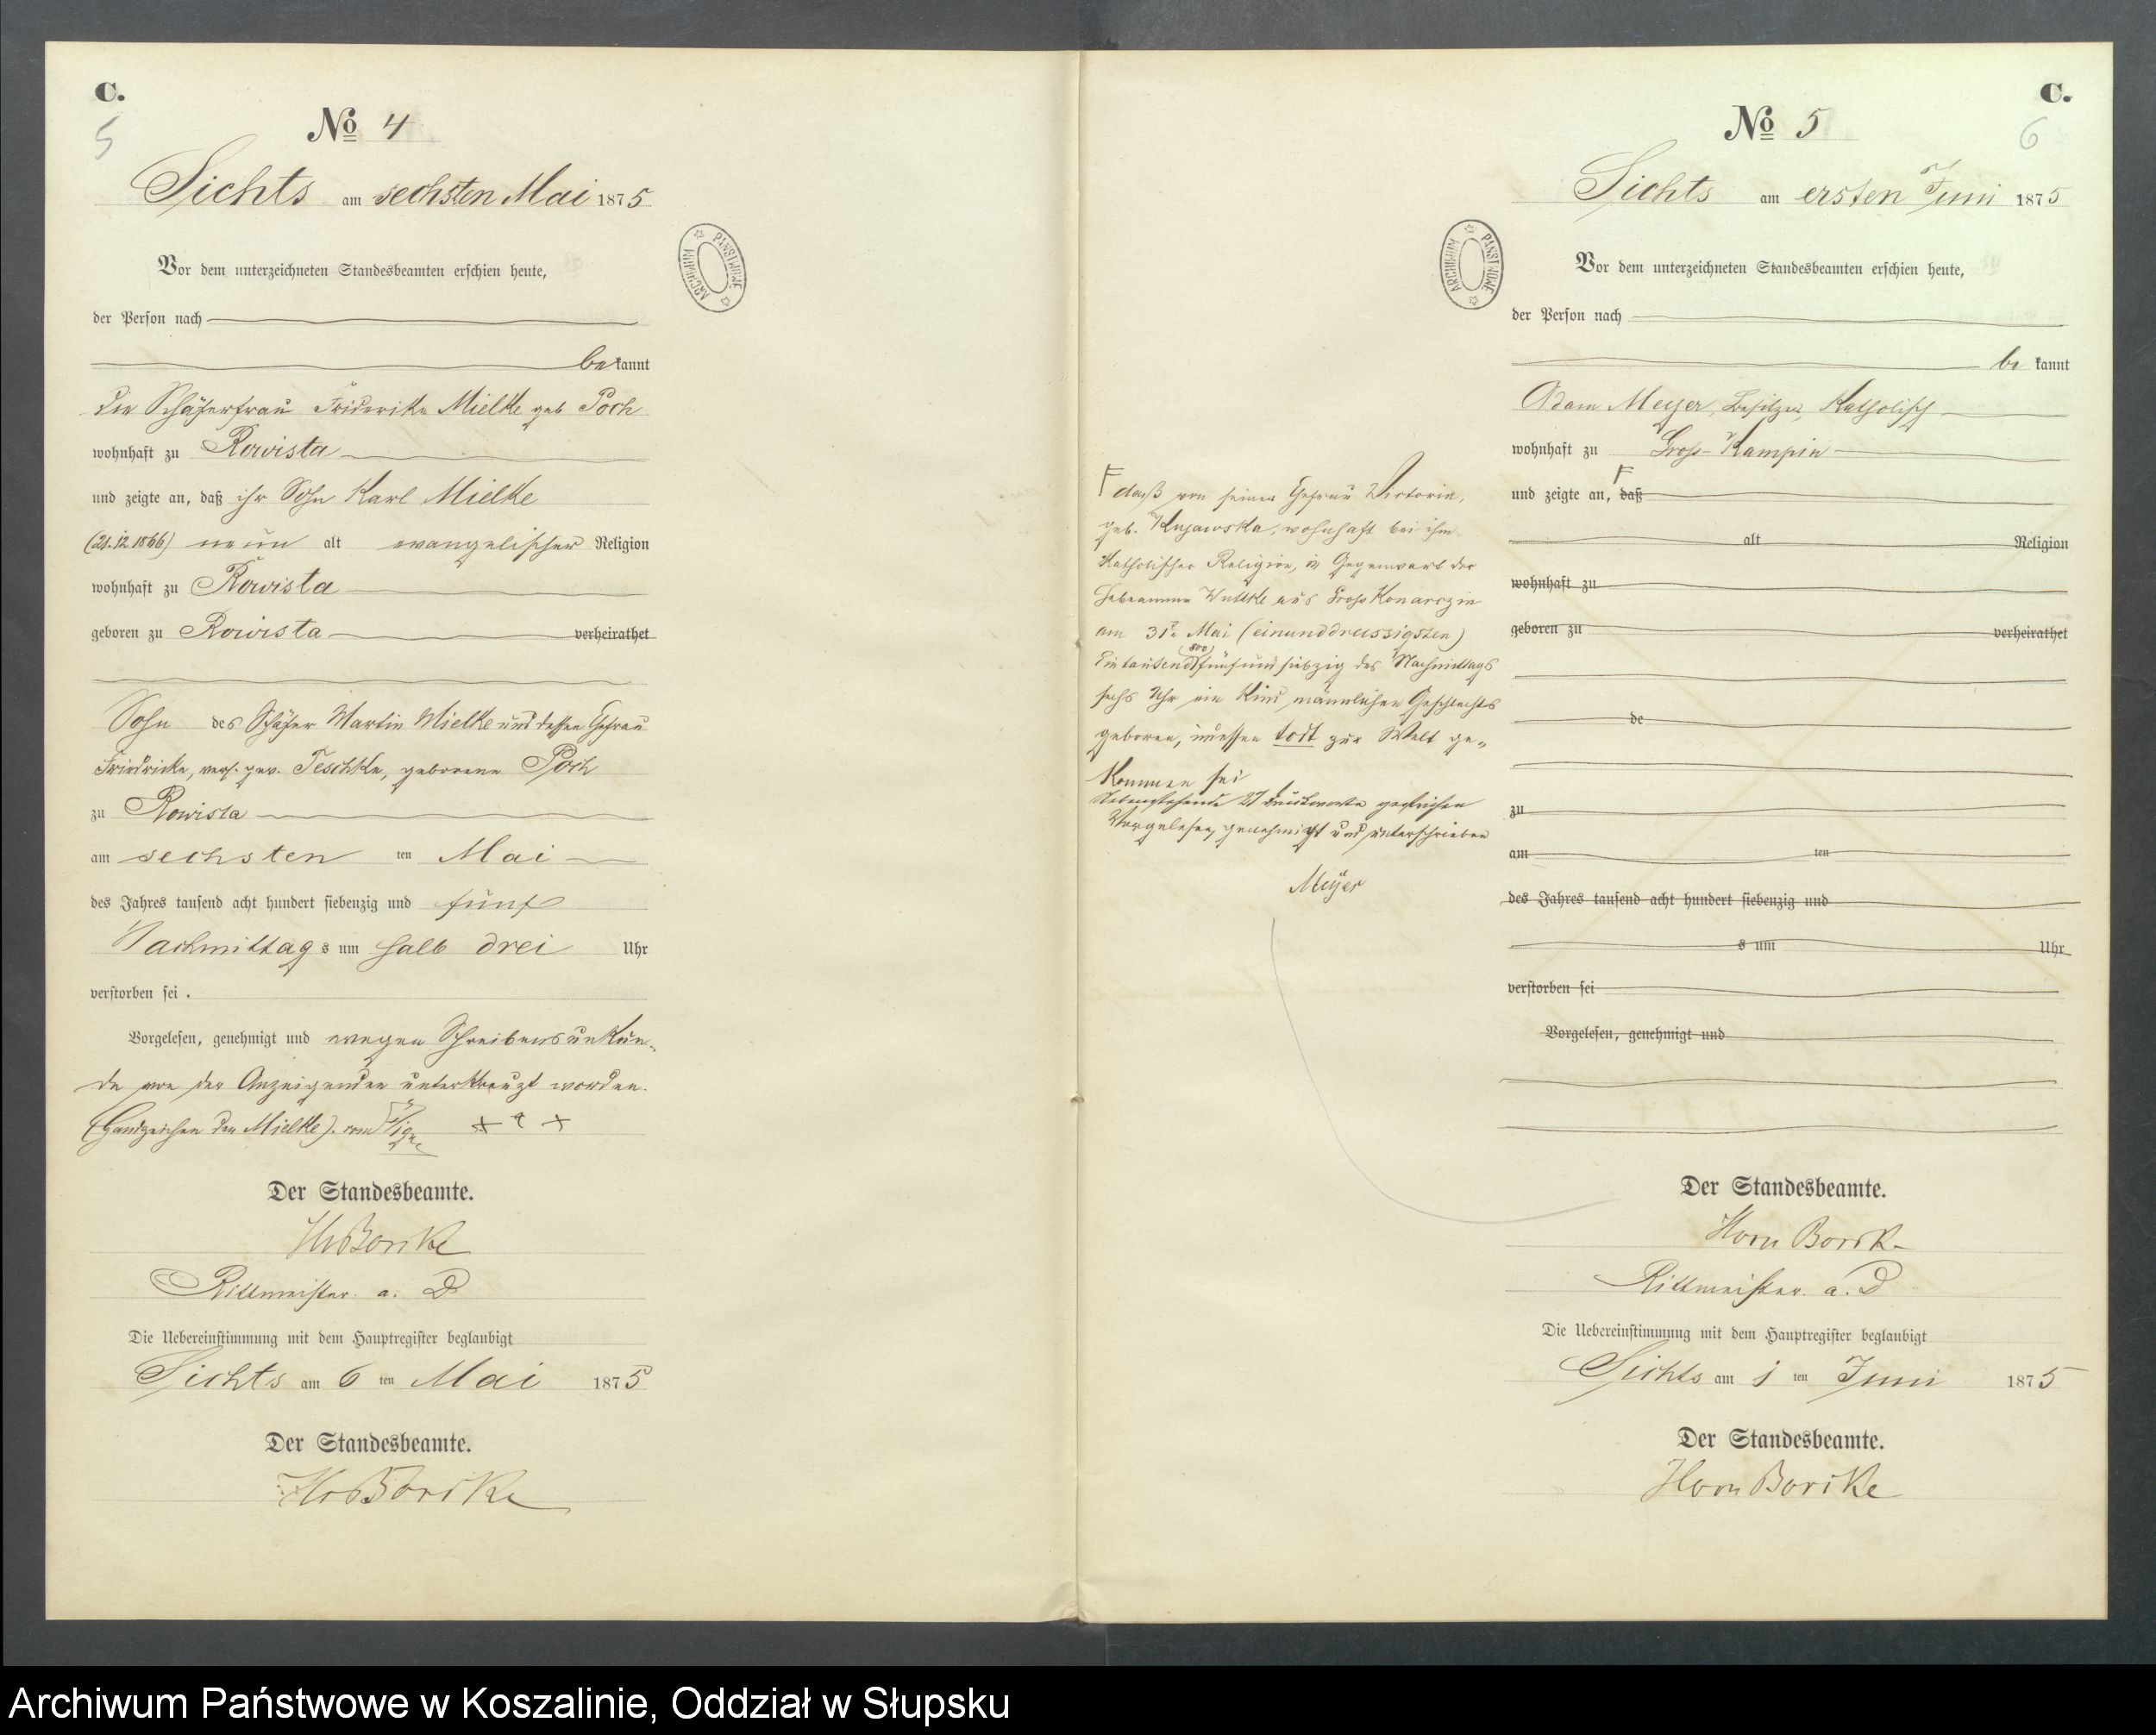 C.
5
No 4
Sichts am sechsten Mai 1875
Vor dem unterzeichneten Standesbeamten erschien heute,
der Person nach
bekannt
die Schäferfrau Friderike Mielke geb Poch
wohnhaft zu Rowista
und zeigte an, daß ihr Sohn Karl Mielke
(21.12.1866) neun alt evangelischer Religion
wohnhaft zu Rowista
geboren zu Rowista verheirathet
Sohn des Schäfer Martin Mielke und dessen Ehefrau
Friedricke, gew. Teschke, geborene Poch
zu Rowista
am sechsten ten Mai
des Jahres tausend acht hundert siebenzig und fünf
Nachmittags um halb drei Uhr
verstorben sei.
Vorgelesen, genehmigt und wegen Schreibensunkun-
de von der Anzeigenden unterkreuzt worden.
(Handzeichen der Mielke). + +
Der Standesbeamte.
Rittmeister a. D
Die Uebereinstimmung mit dem Hauptregister beglaubigt
Sichts am 6 ten Mai 1875
Der Standesbeamte.
ARCHIWUM PAŃSTWOWE
C.
6
No 5
Sichts am ersten Juni 1875
Vor dem unterzeichneten Standesbeamten erschien heute,
der Person nach
be kannt
Adam Meyer, Besitzer, Katholisch
wohnhaft zu Gross-Kampin
und zeigte an, daß
alt Religion
wohnhaft zu
geboren zu verheirathet
de
zu
am ten
des Jahres tausend acht hundert siebenzig und
s um Uhr
verstorben sei
Vorgelesen, genehmigt und
Der Standesbeamte.
Rittmeister a. D
Die Uebereinstimmung mit dem Hauptregister beglaubigt
Sichts am 1 ten Juni 1875
Der Standesbeamte.
ARCHIWUM PAŃSTWOWE
daß von seiner Ehefrau Victoria,
geb. Kujawska, wohnhaft bei ihm
Katholischer Religion, in Gegenwart der
Hebeamme Wuttke aus Gross Konarczin
am 31t Mai (einunddreissigsten)
(800)
Eintausend fünfundsiebzig des Nachmittags
sechs Uhr ein Kind männlichen Geschlechts
geboren, indessen todt zur Welt ge-
kommen sei
Nebenstehende 27 Druckworte gestrichen
Vorgelesen, genehmigt und unterschrieben
Meyer
Archiwum Państwowe w Koszalinie, Oddział w Słupsku